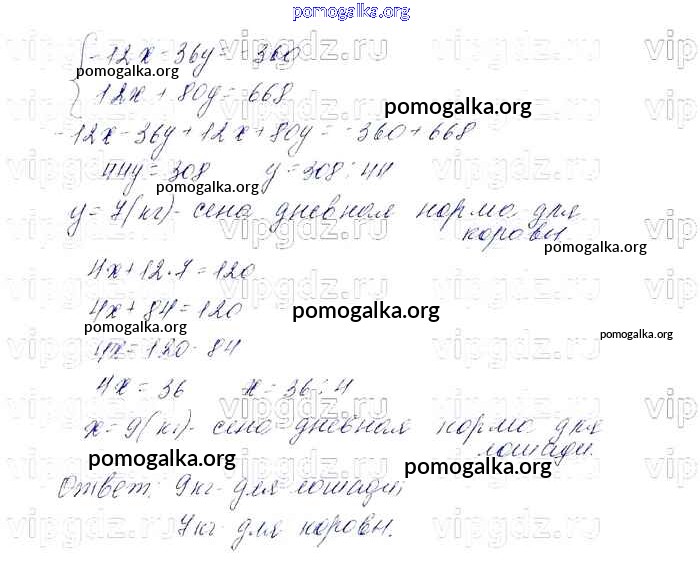 pomogalka.org
-12x - 36y = -360
pomogalka.org
12x + 80y = 668
pomogalka.org
-12x - 36y + 12x + 80y = -360 + 668
44y = 308 y = 308 : 44
pomogalka.org
y = 7 (кг) - сена дневная норма для
коровы
pomogalka.org
4x + 12·7 = 120
4x + 84 = 120
pomogalka.org
pomogalka.org
pomogalka.org
4x = 120 - 84
4x = 36 x = 36 : 4
x = 9 (кг) - сена дневная норма для
лошади.
pomogalka.org
pomogalka.org
Ответ: 9 кг для лошади,
7 кг для коровы.
vipgdz.ru